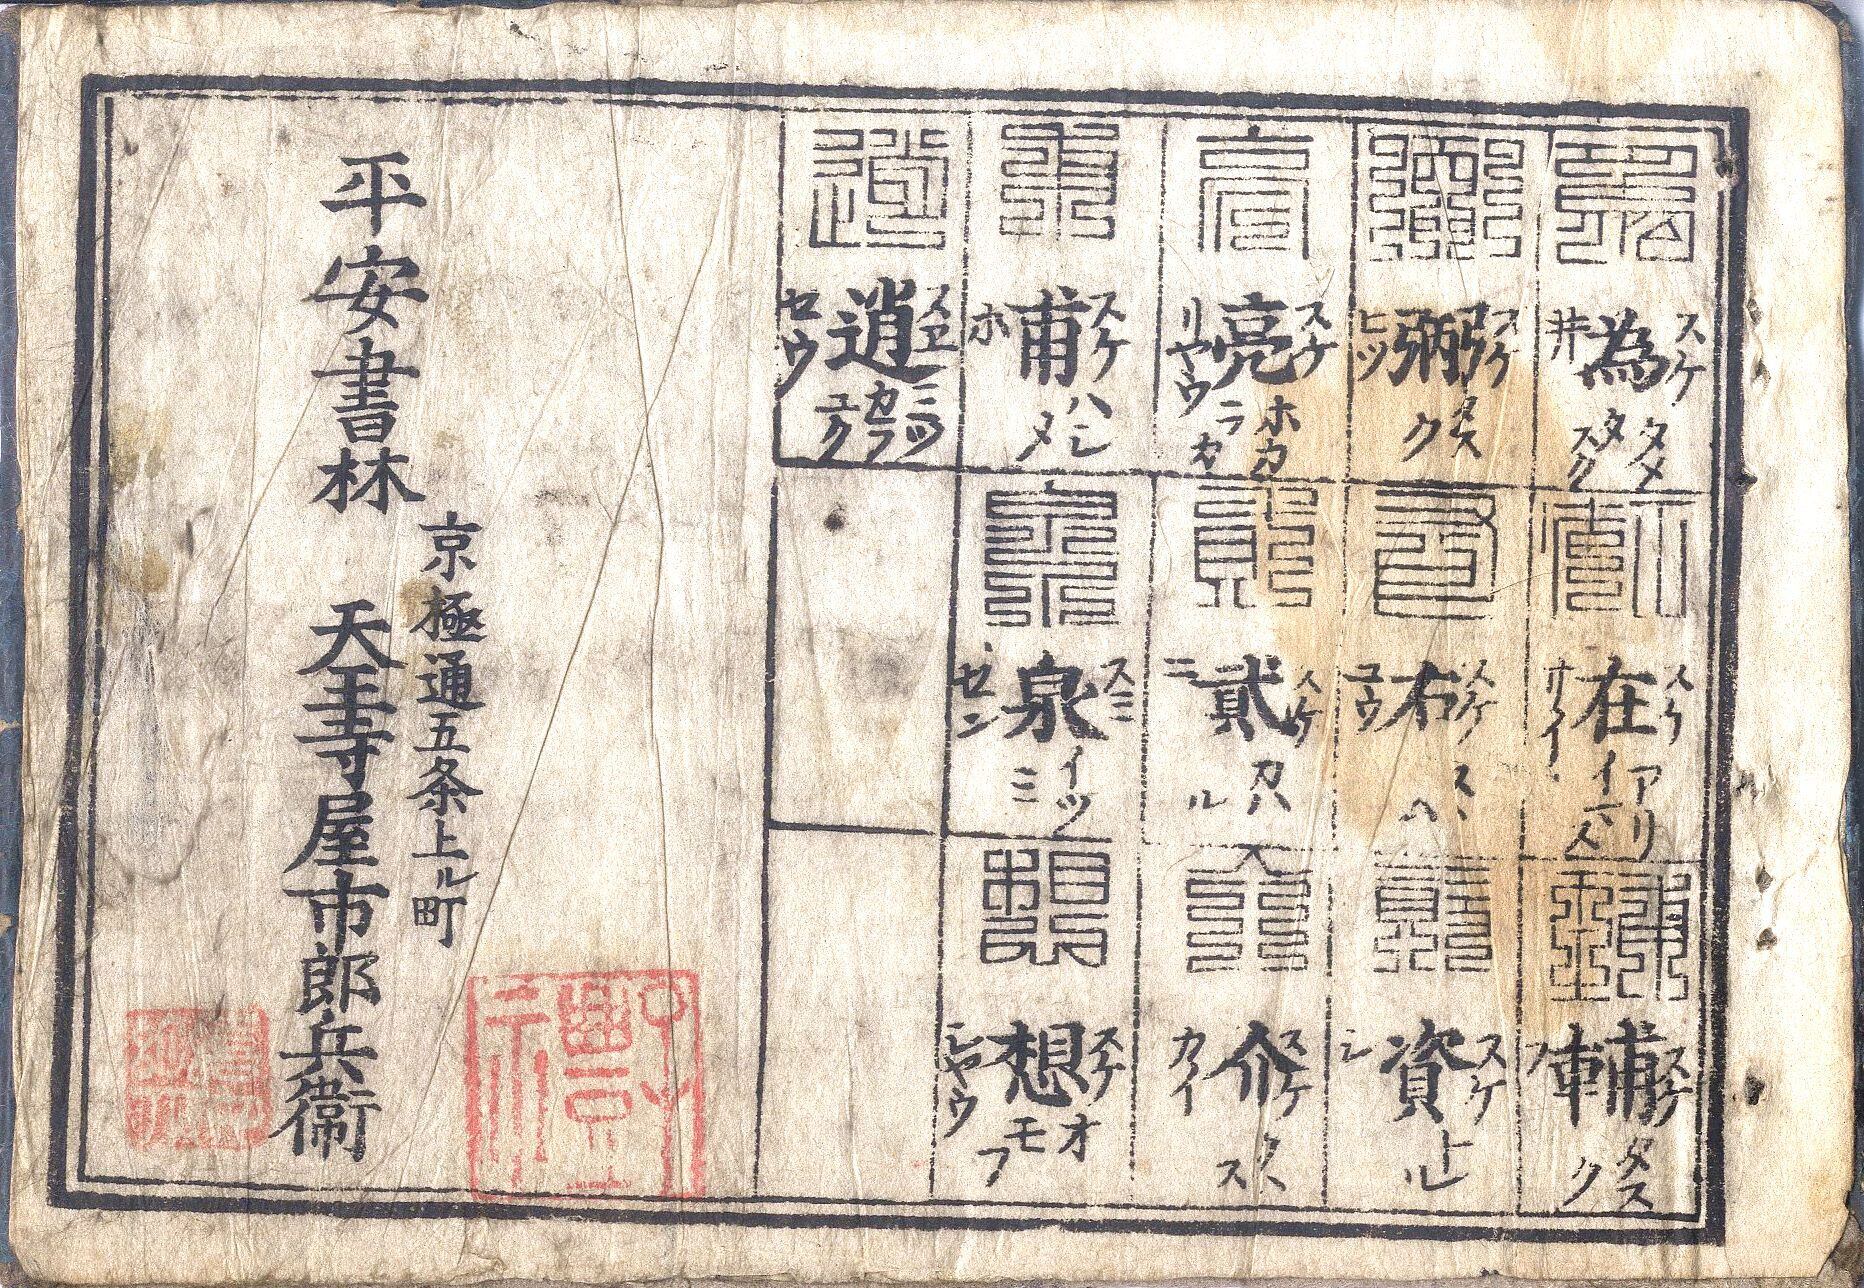 為 スケ 井 タメ タスク
弼 スケ ヒツ タスク
亮 スケ リヤウ ホカラカ
甫 スケ ホ ハシメ
逍 スヱ セウ ユク
在 スケ サイ アリ イマス
右 スケ ユウ
貳 スケ ニ カハル
泉 スミ セン イツミ
輔 スケ フ タスク
資 スケ シ
介 スケ カイ
想 スケ シヤウ オモフ
京極通五条上ル町
平安書林 天王寺屋市郎兵衞